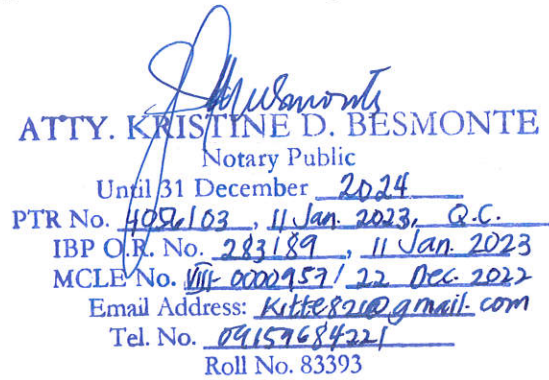 ATTY. KRISTINE D. BESMONTE
Notary Public
Until 31 December 2024
PTR No. 4056103, 11 Jan. 2023, Q.C.
IBP O.R. No. 283189, 11 Jan. 2023
MCLE No. VIII-0000957/ 22 Dec. 2022
Email Address: Kitte821@gmail.com
Tel. No. 09159684221
Roll No. 83393